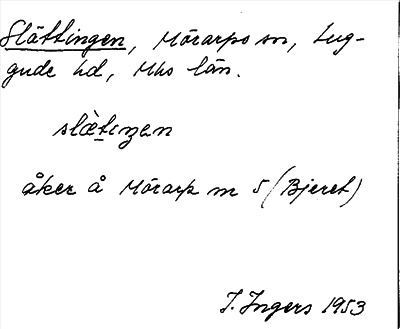 Slättingen, Mörarps sn, Lug-
gude hd, Mhs län.
slæ̀tɩŋen
åker å Mörarp nr 5 (Bjeret)
I. Ingers 1953